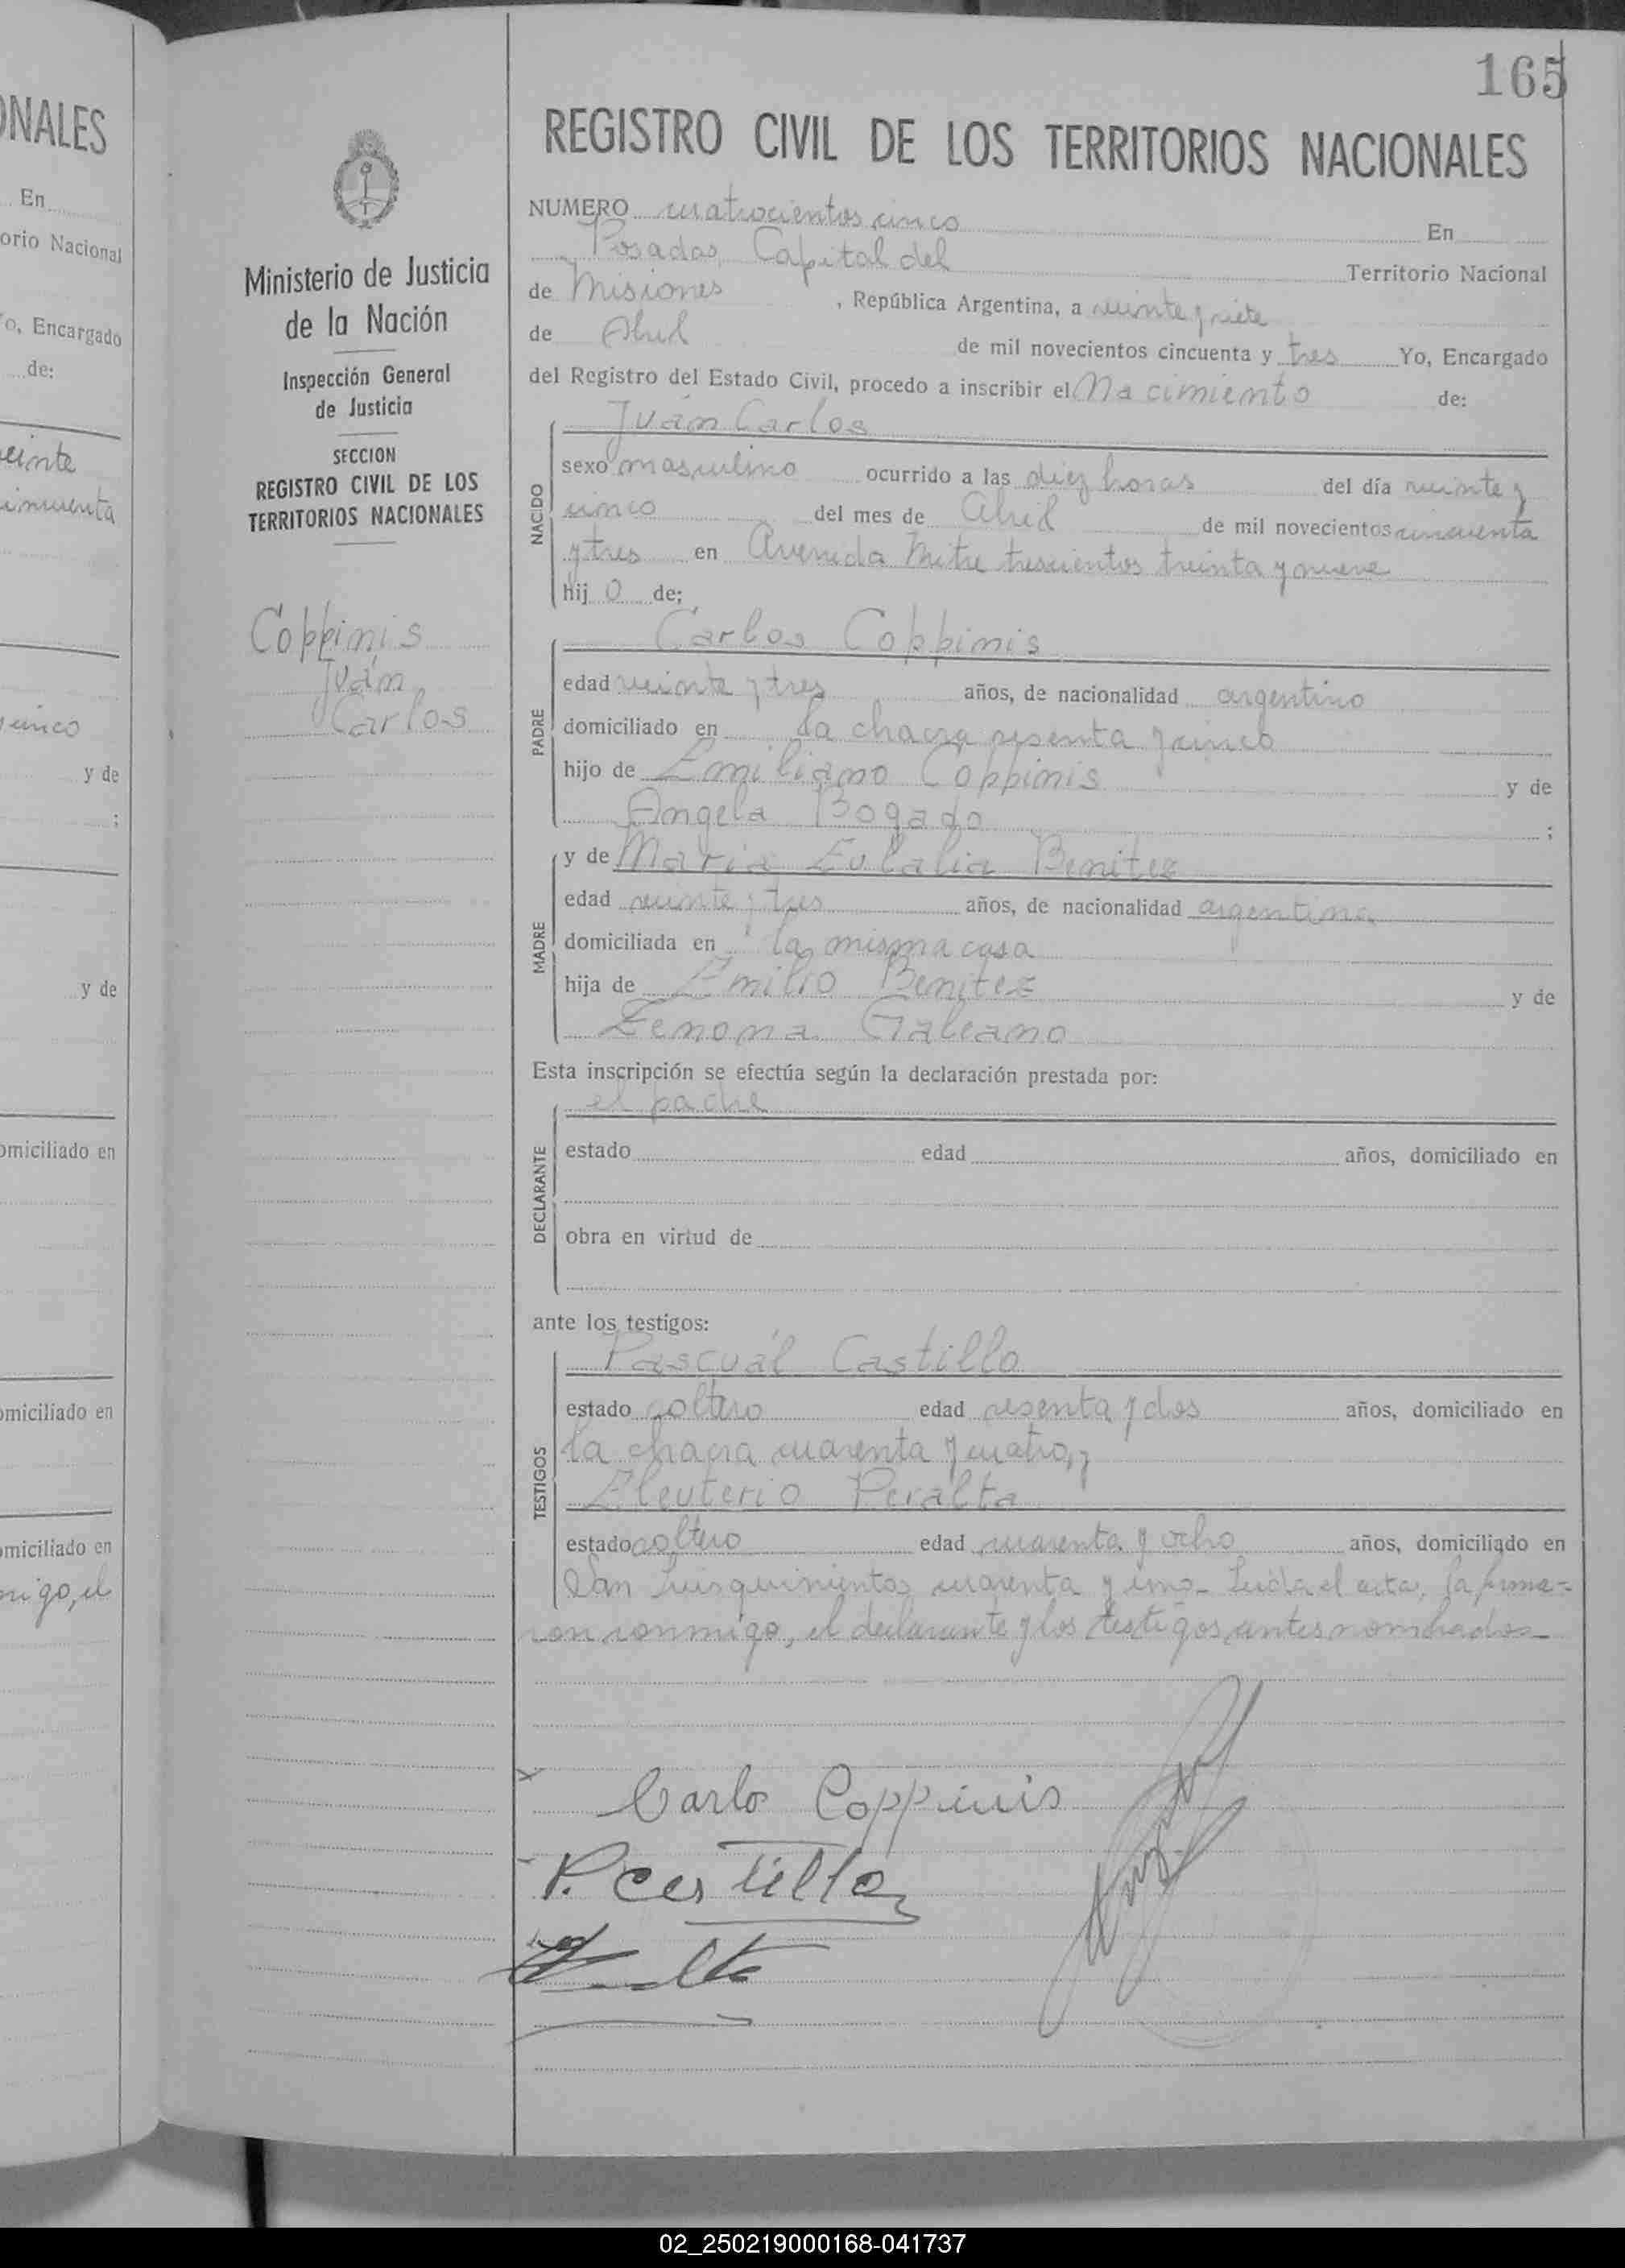 165
REGISTRO CIVIL DE LOS TERRITORIOS NACIONALES
NUMERO cuatrocientos cinco En
Posadas, Capital del Territorio Nacional
de Misiones, República Argentina, a veinte y siete
de Abril de mil novecientos cincuenta y tres Yo, Encargado
del Registro del Estado Civil, procedo a inscribir el Nacimiento de:
Juán Carlos
NACIDO
sexo masculino ocurrido a las diez horas del día veinte y
cinco del mes de Abril de mil novecientos cincuenta
y tres en Avenida Mitre trescientos treinta y nueve
hij o de;
Carlos Coppinis
PADRE
edad veinte y tres años, de nacionalidad argentino
domiciliado en la chacra sesenta y cinco
hijo de Emiliano Coppinis y de
Angela Bogado ;
MADRE
y de Maria Eulalia Benitez
edad veinte y tres años, de nacionalidad argentina
domiciliada en la misma casa
hija de Emilio Benitez y de
Zenona Galeano
Esta inscripción se efectúa según la declaración prestada por:
el padre
DECLARANTE
estado edad años, domiciliado en
obra en virtud de
ante los testigos:
Pascuál Castillo
TESTIGOS
estado soltero edad sesenta y dos años, domiciliado en
la chacra cuarenta y cuatro, y
Eleuterio Peralta
estado soltero edad cuarenta y ocho años, domiciliado en
San Luis quinientos cuarenta y uno - Leida el acta, la firma=
ron conmigo, el declarante y los testigos antes nombrados-
Carlo Coppinis
P. Castillo
Ministerio de Justicia
de la Nación
Inspección General
de Justicia
SECCION
REGISTRO CIVIL DE LOS
TERRITORIOS NACIONALES
Coppinis
Juán
Carlos
ONALES
En
orio Nacional
o, Encargado
de:
veinte
cincuenta
cinco
y de
;
y de
omiciliado en
omiciliado en
omiciliado en
migo, el
02_250219000168-041737